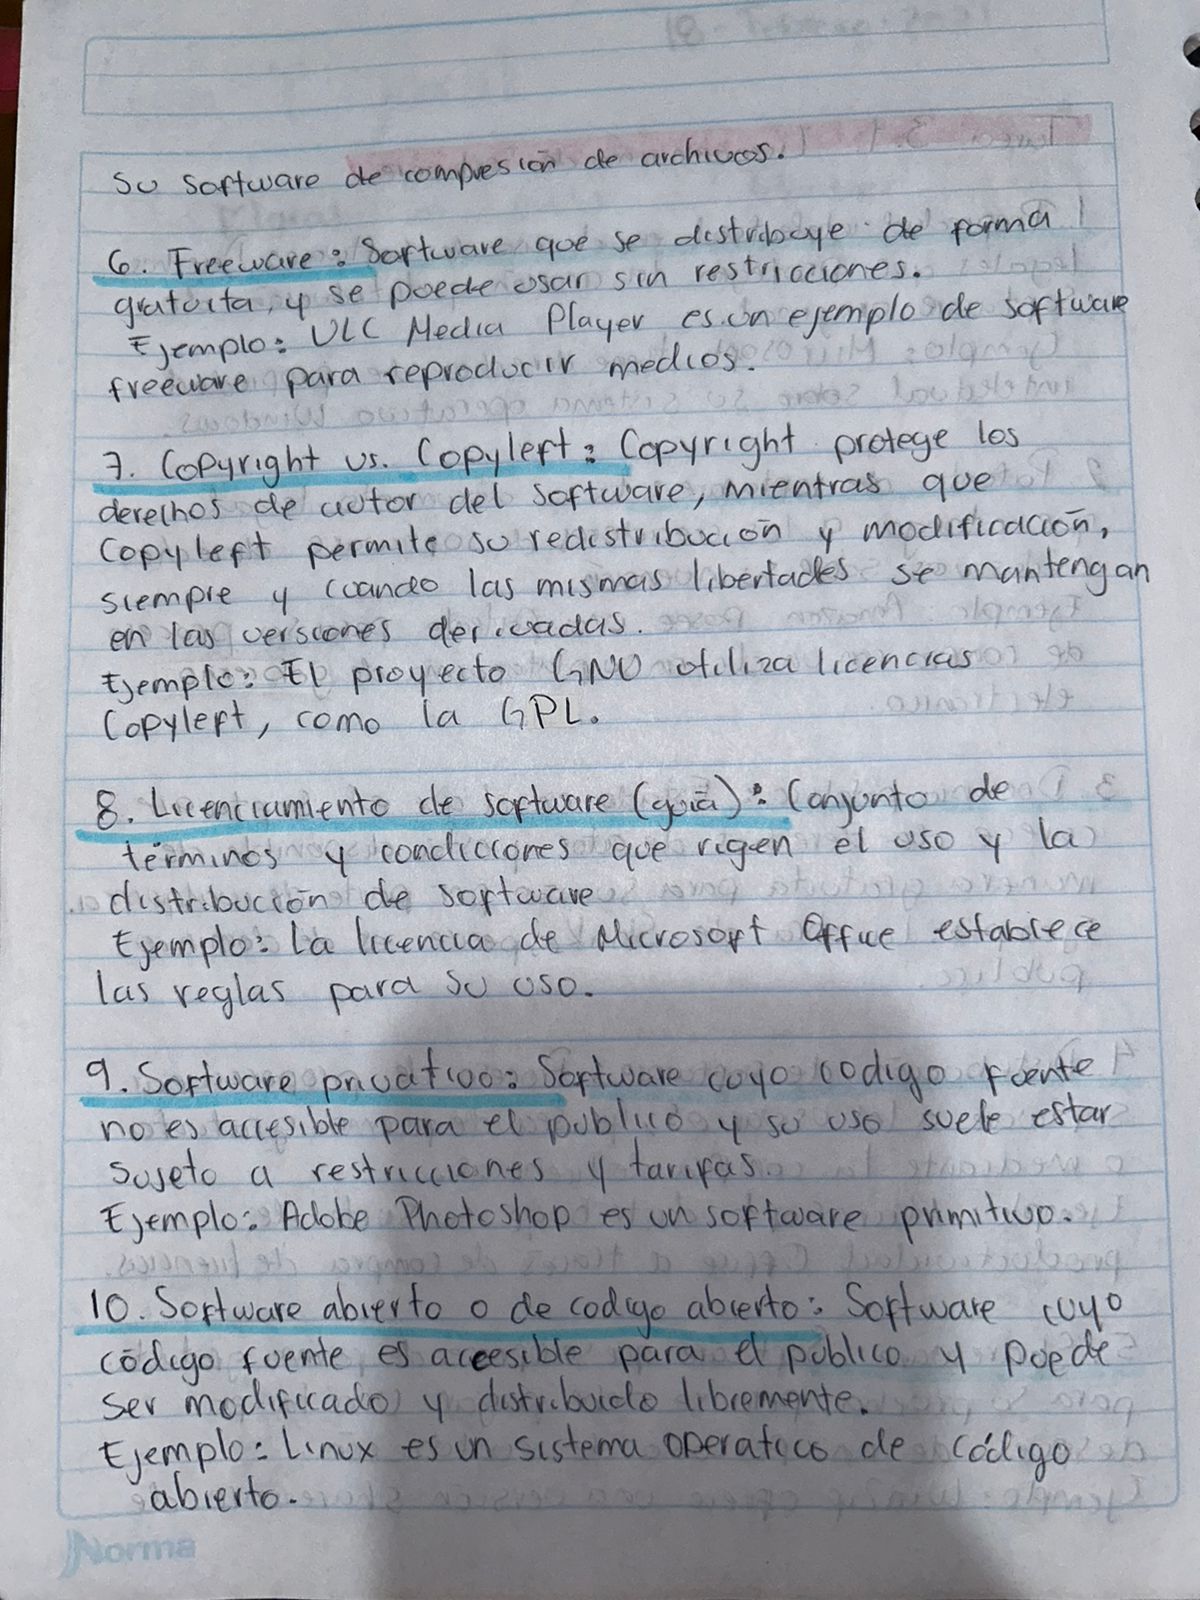 su software de compresión de archivos.
6. Freeware: Software que se distribuye de forma
gratuita, y se puede usar sin restricciones.
Ejemplo: VLC Media Player es un ejemplo de software
freeware para reproducir medios.
7. Copyright vs. Copyleft: Copyright protege los
derechos de autor del software, mientras que
Copyleft permite su redistribución y modificación,
siempre y cuando las mismas libertades se mantengan
en las versiones derivadas.
Ejemplo: El proyecto GNU utiliza licencias
Copyleft, como la GPL.
8. Licenciamiento de software (guía): Conjunto de
términos y condiciones que rigen el uso y la
distribución de software
Ejemplo: La licencia de Microsoft Office establece
las reglas para su uso.
9. Software privativo: Software cuyo codigo fuente
no es accesible para el público y su uso suele estar
sujeto a restricciones y tarifas.
Ejemplo: Adobe Photoshop es un software primitivo.
10. Software abierto o de codigo abierto: Software cuyo
código fuente es accesible para el público y puede
ser modificado y distribuido libremente.
Ejemplo: Linux es un sistema operativo de código
abierto.
Norma